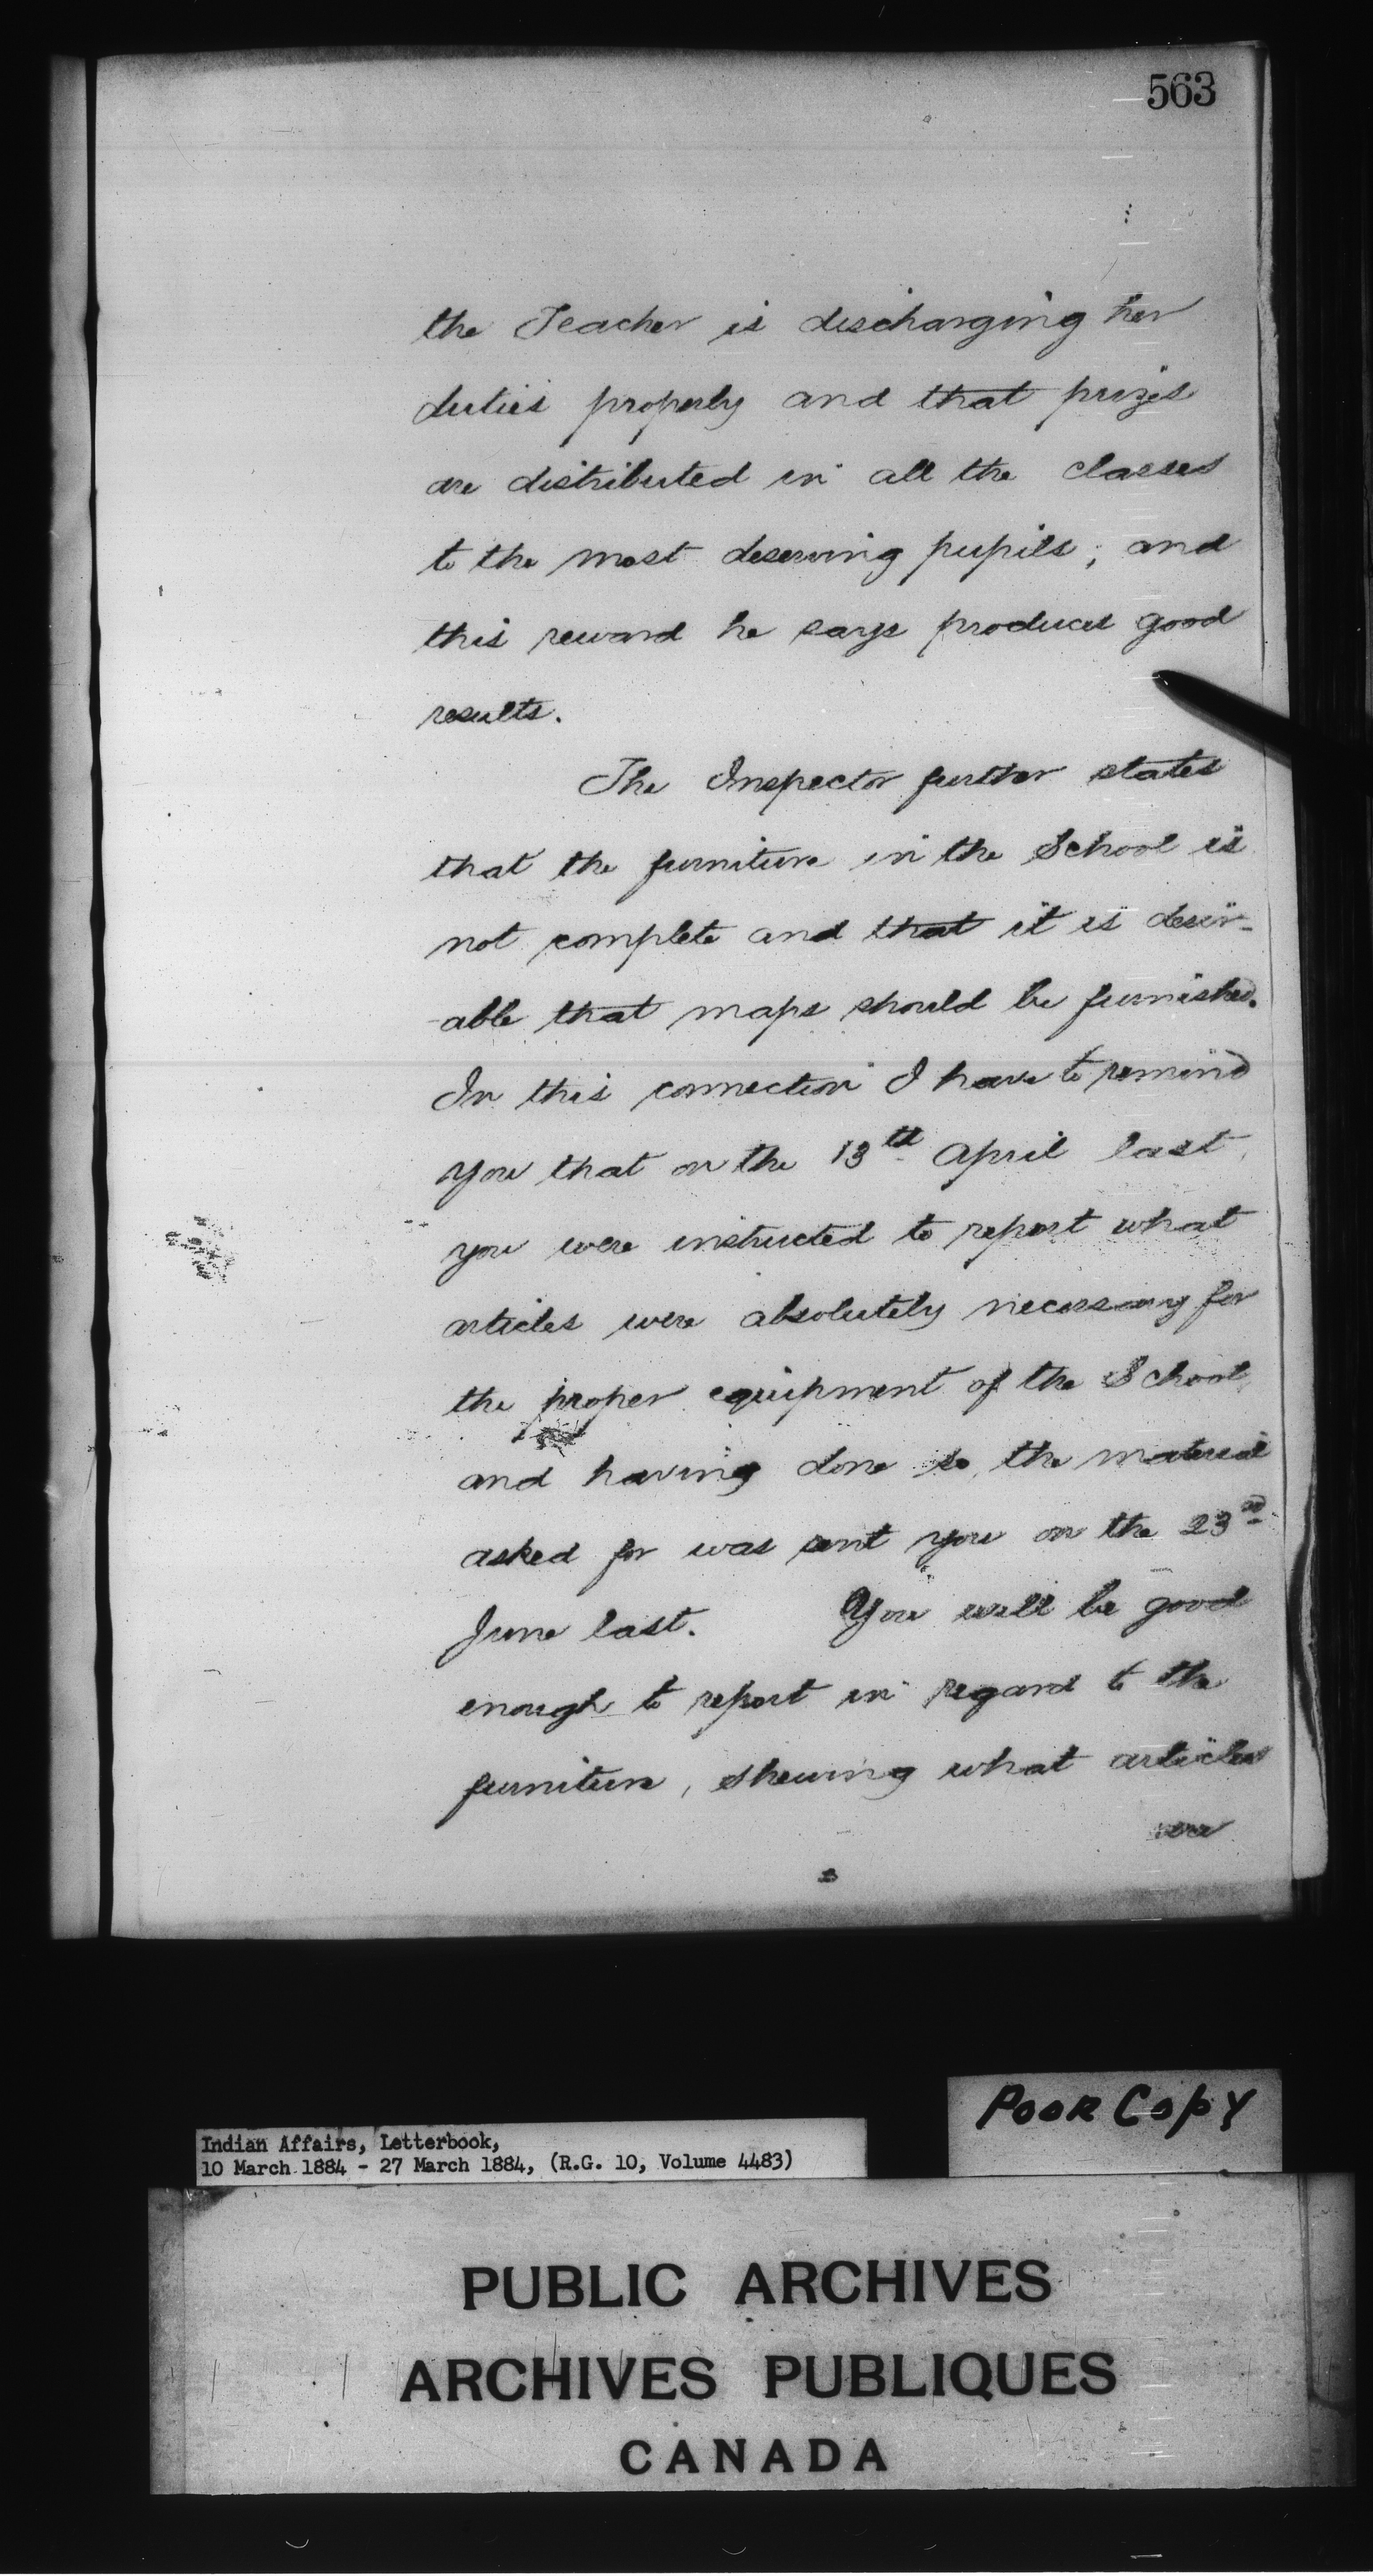 563
the Teacher is discharging her
duties properly and that prizes
are distributed in all the classes
to the most deserving pupils; and
this reward he says produces good
results.
The Inspector further states
that the furniture in the School is
not complete and that it is desir-
-able that maps should be furnished.
In this connection I have to remind
you that on the 13th April last,
you were instructed to report what
articles were absolutely necessary for
the proper equipment of the School,
and having done so, the material
asked for was sent you on the 23rd
June last. You will be good
enough to report in regard to the
furniture, shewing what articles
are
POOR COPY
Indian Affairs, Letterbook,
10 March 1884 - 27 March 1884, (R.G. 10, Volume 4483)
PUBLIC ARCHIVES
ARCHIVES PUBLIQUES
CANADA